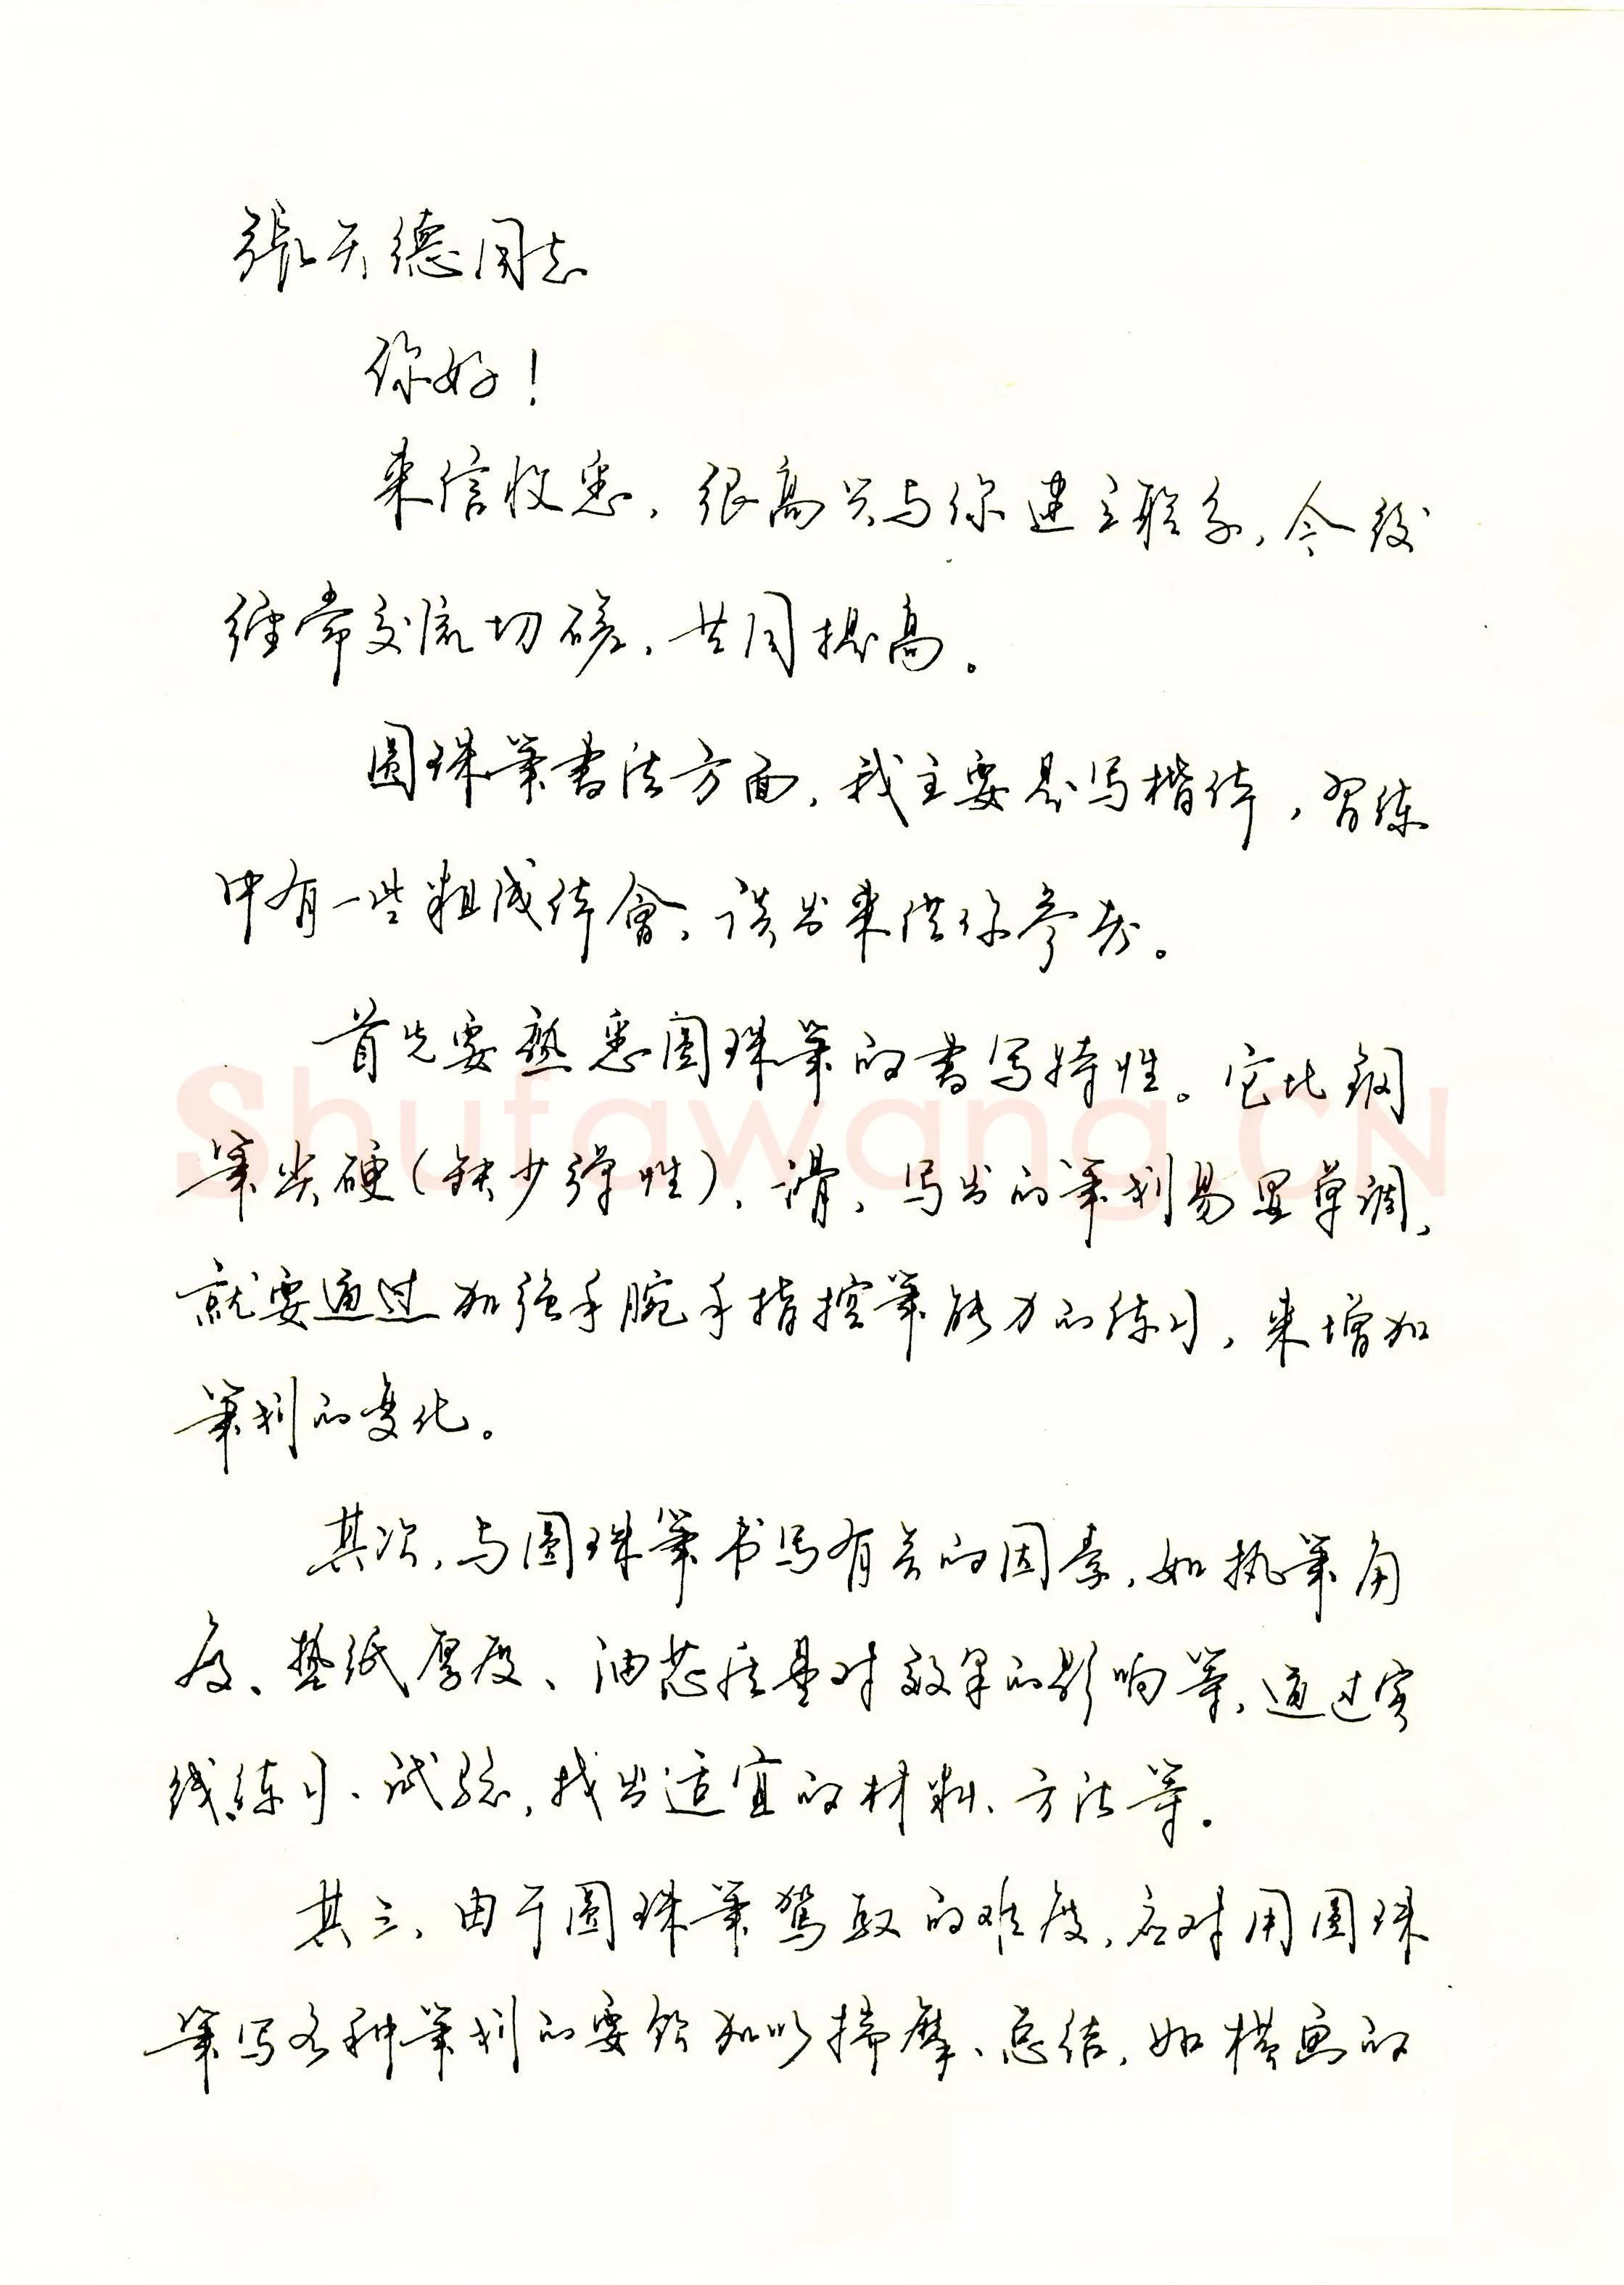 張天德同志
你好！
来信收悉，很高兴与你建立联系，今後
经常交流切磋，共同提高。
圆珠筆書法方面，我主要是写楷体，習练
中有一些粗浅体會，谈出来供你参考。
首先要熟悉圆珠筆的書写特性。它比鋼
筆尖硬（缺少弹性），滑，写出的筆划易显单调，
就要通过加强手腕手指控筆能力的练习，来增加
筆划的变化。
其次，与圆珠筆书写有关的因素，如执筆角
度、垫纸厚度、油芯质量对效果的影响等，通过实
践练习、试验，找出适宜的材料、方法等。
其三，由于圆珠筆驾驭的难度，应对用圆珠
筆写各种筆划的要领加以揣摩、总结，如横画的
Shufawang.CN